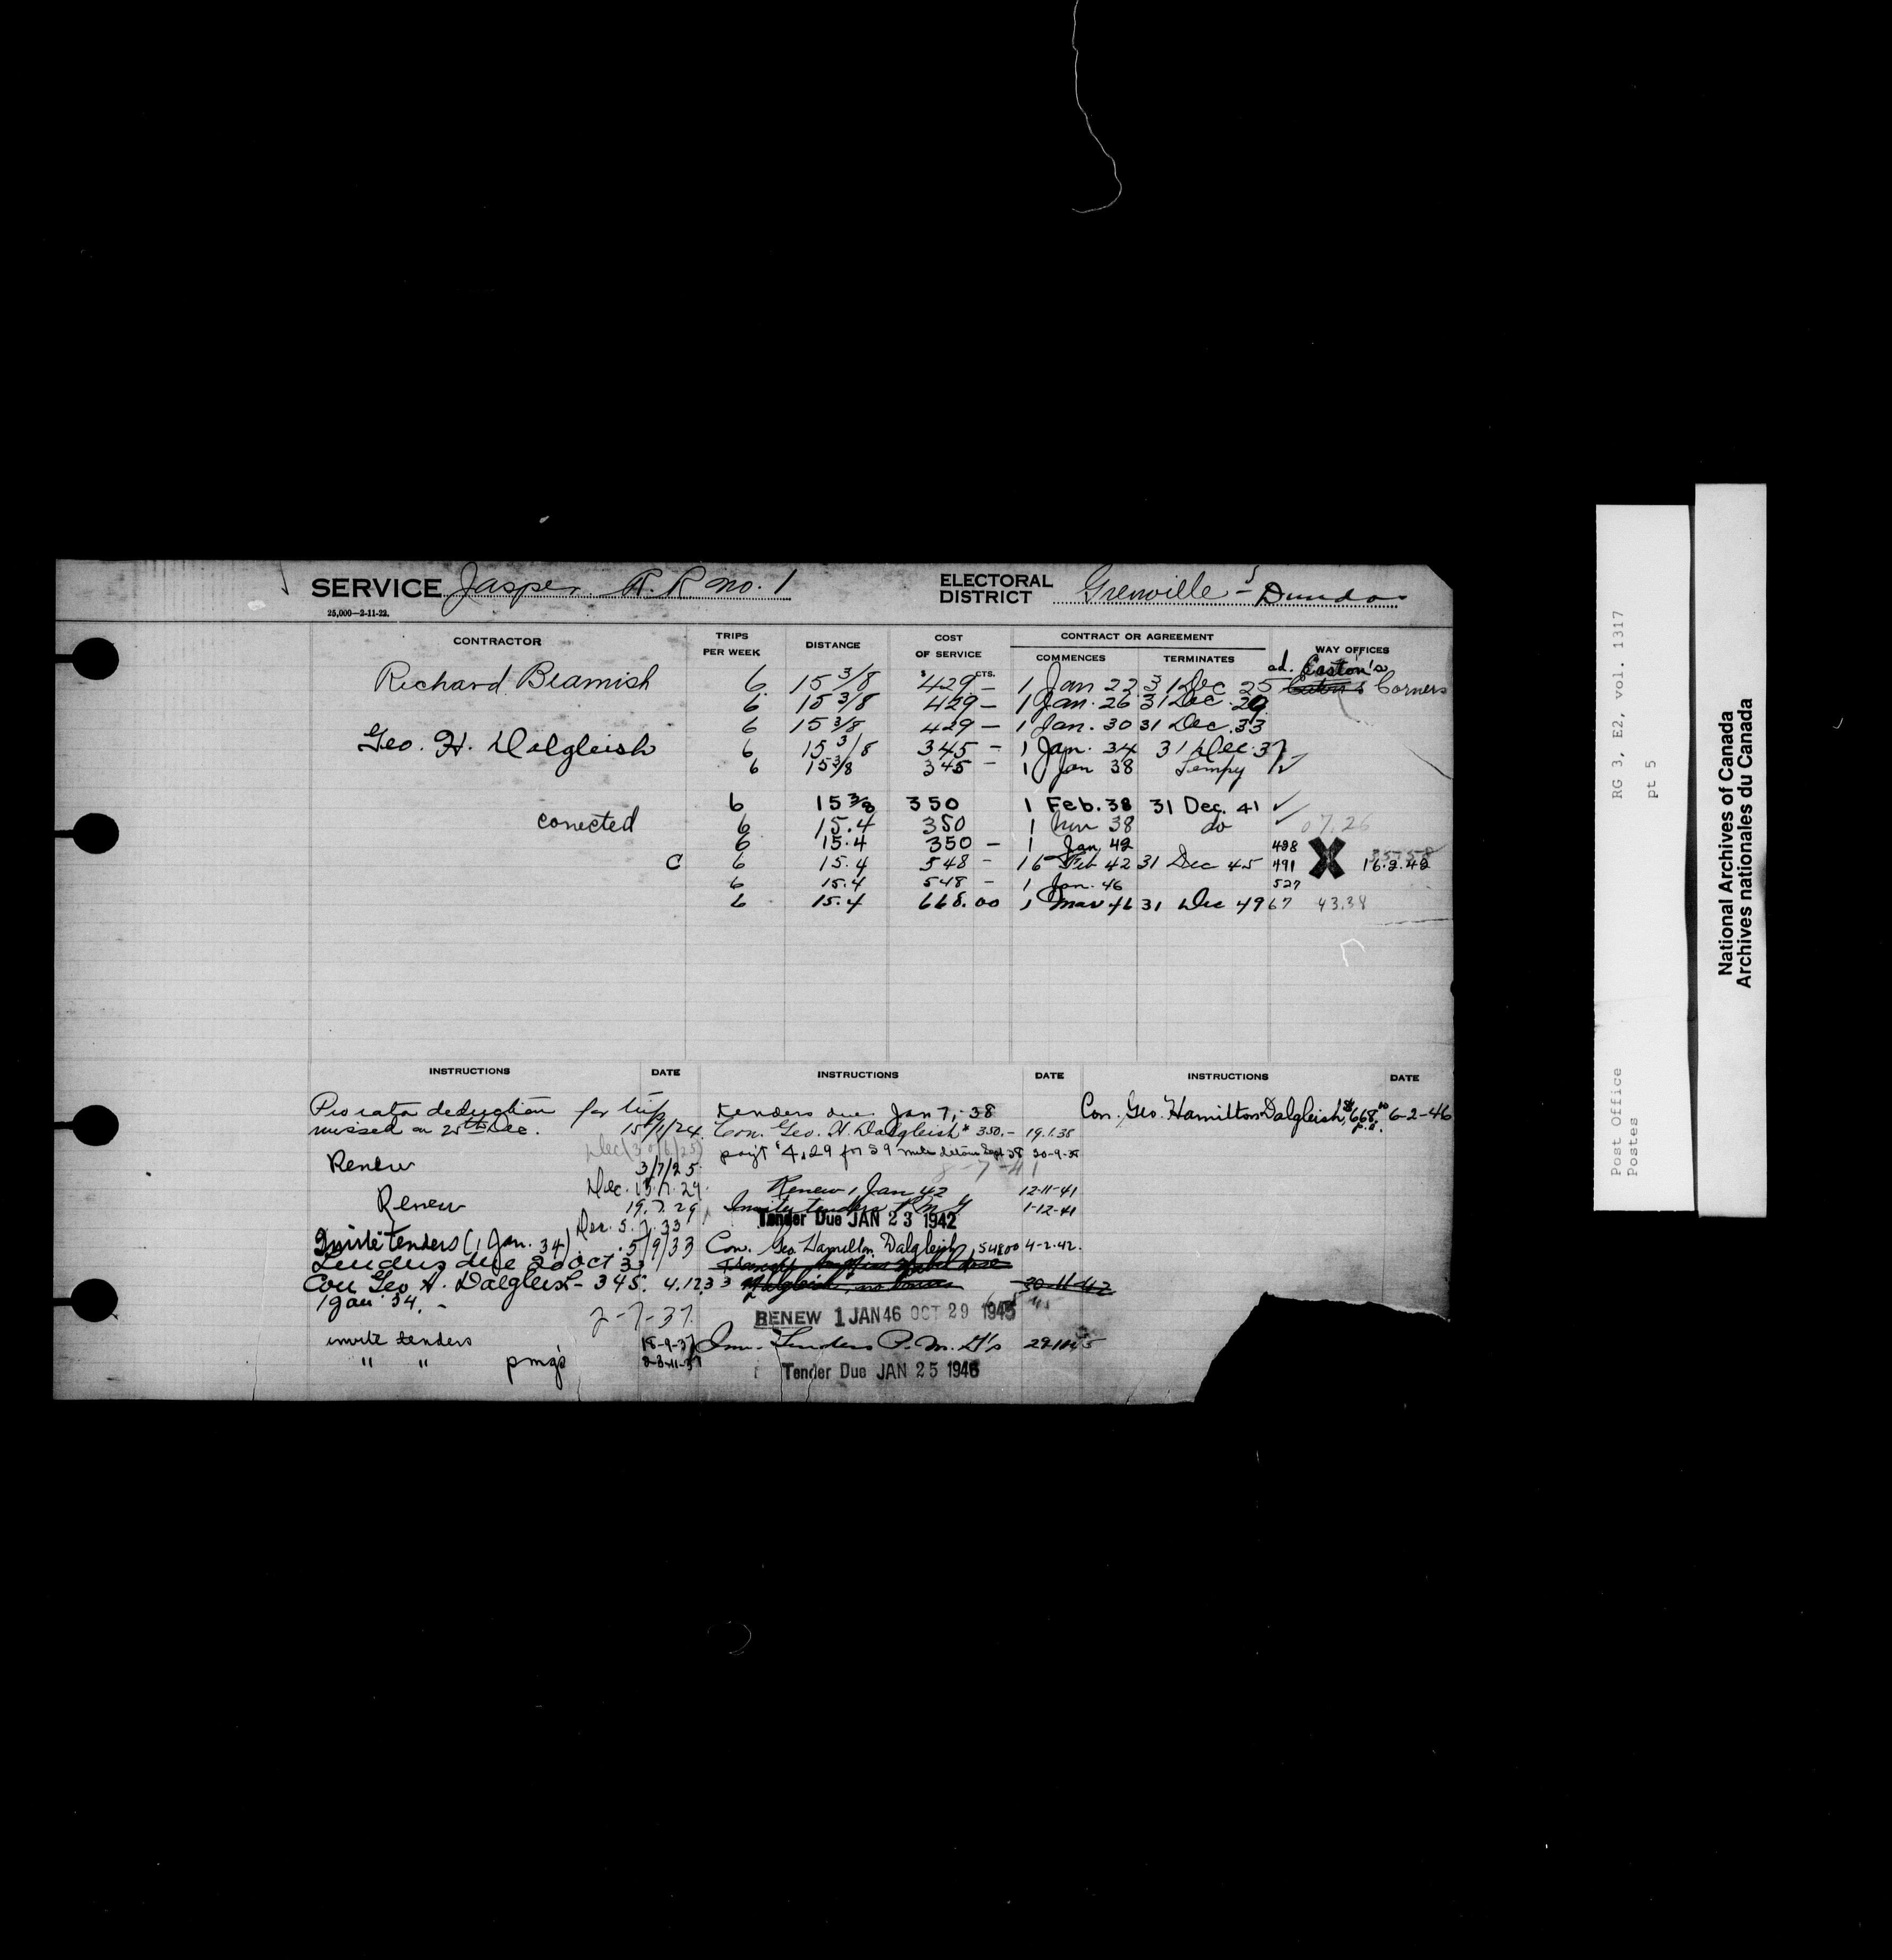 SERVICE Jasper R.R. no. 1 ELECTORAL DISTRICT Grenville - Dundas
25,000—2-11-22.
CONTRACTOR TRIPS PER WEEK DISTANCE COST OF SERVICE CONTRACT OR AGREEMENT COMMENCES TERMINATES WAY OFFICES
$ CTS. ad. Easton's
Richard Beamish 6 15 3/8 429 — 1 Jan 22 31 Dec 25 Corners
6 15 3/8 429 — 1 Jan. 26 31 Dec. 29
6 15 3/8 429 — 1 Jan. 30 31 Dec. 33
Geo. H. Dalgleish 6 15 3/8 345 — 1 Jan. 34 31 Dec. 37
6 15 3/8 345 — 1 Jan 38 Tempy ✓
6 15 3/8 350 1 Feb. 38 31 Dec. 41 ✓
corrected 6 15.4 350 1 Nov 38 do ✓ 07.26
6 15.4 350 — 1 Jan 42 498
C 6 15.4 548 — 16 Feb 42 31 Dec 45 491 X 16.2.42
6 15.4 548 — 1 Jan. 46 527
6 15.4 668.00 1 Mar 46 31 Dec 49 67 43.38
INSTRUCTIONS DATE INSTRUCTIONS DATE INSTRUCTIONS DATE
Pro rata deduction for trip
missed on 25th Dec. 15/1/24
Dec (30/6/25)
Renew 3/7/25
Dec. 15.7.29
Renew 19.7.29
Dec. 5.7.33
Invite tenders (1 Jan. 34) 5/9/33
Tenders due 20 Oct 33
Con Geo H. Dalgleish - 345. 4.12.33
1 Jan. 34. -
2-7-37.
invite tenders 18-9-37
" " pmg's
tenders due Jan 7, -38
Con. Geo. H. Dalgleish 350.- 19.1.38
paym't $4.29 for 59 miles detour Sept 38 30-9-38
8-7-41
Renew 1 Jan 42 12-11-41
Invite tenders P.M.G 1-12-41
Tender Due JAN 23 1942
Con. Geo. Hamilton Dalgleish, 548.00 4-2-42.
30-11-42
RENEW 1 JAN 46 OCT 29 1945
Inv. Tenders P.M.G's
Tender Due JAN 25 1946
Con. Geo. Hamilton Dalgleish, $668.00 p.a. 6-2-46
Post Office
Postes
RG 3, E2, vol. 1317
pt 5
National Archives of Canada
Archives nationales du Canada